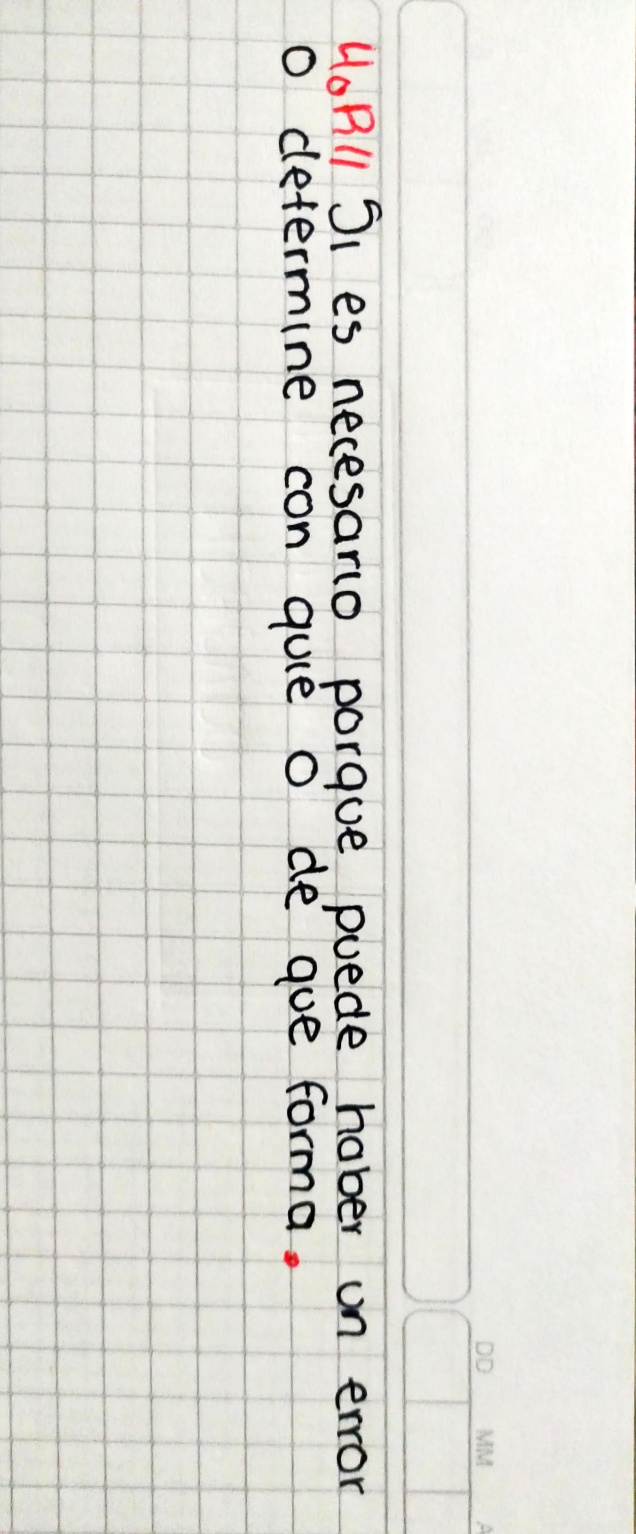 DD MM A
4. R// Si es necesario porque puede haber un error
o determine con quie o de que forma.